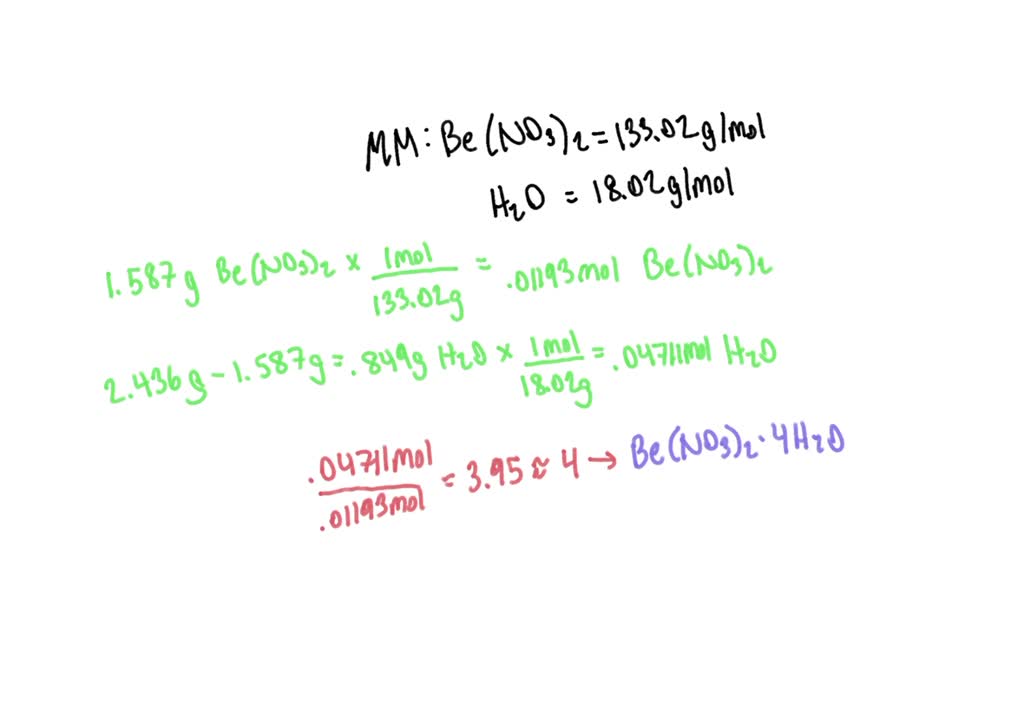 MM: Be(NO₃)₂ = 133.02g/mol
H₂O = 18.02g/mol
1.587g Be(NO₃)₂ × 1mol/133.02g = .01193mol Be(NO₃)₂
2.436g - 1.587g = .849g H₂O × 1mol/18.02g = .04711mol H₂O
.04711mol/.01193mol = 3.95 ≈ 4 → Be(NO₃)₂ · 4H₂O